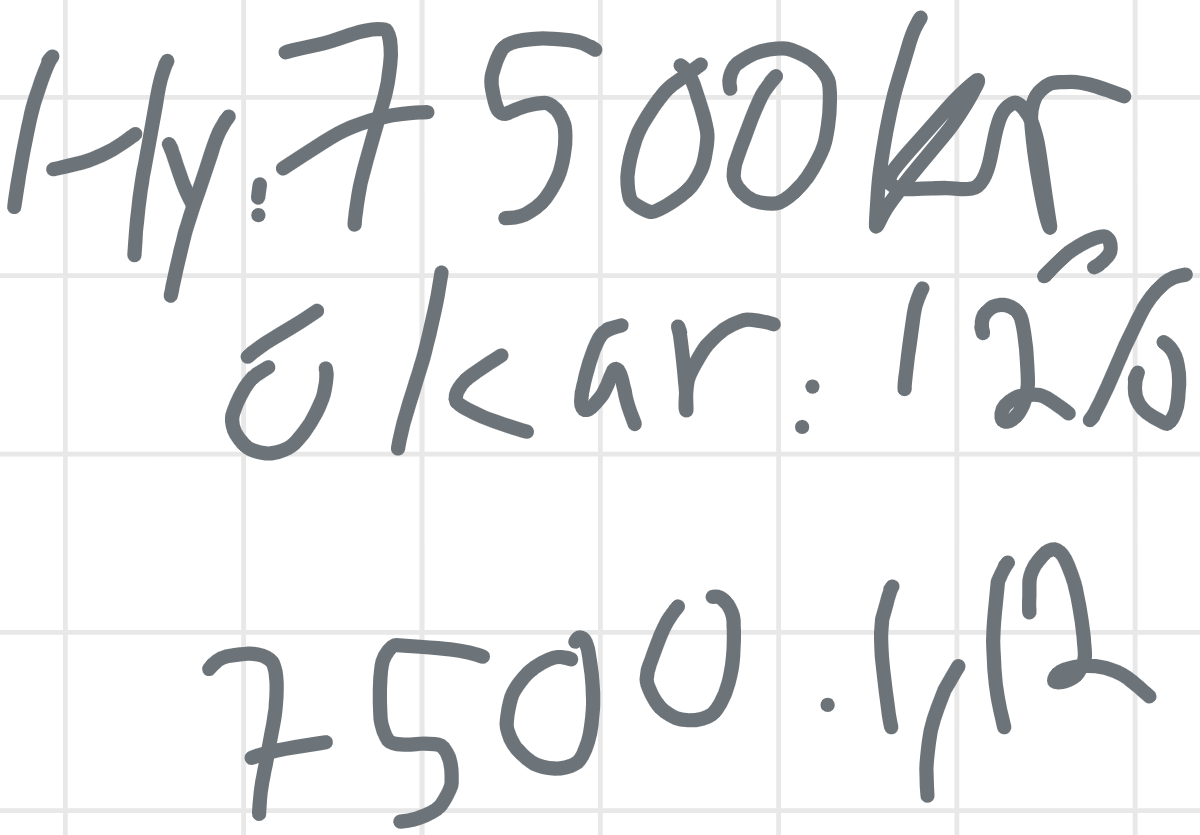 Hy: 7500 kr
ökar: 12%
7500 · 1,12